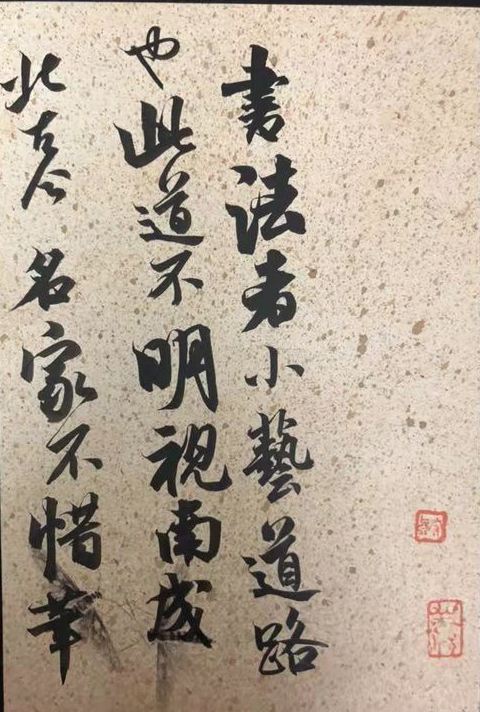 書法者小藝道路
也此道不明視南成
北古今名家不惜華